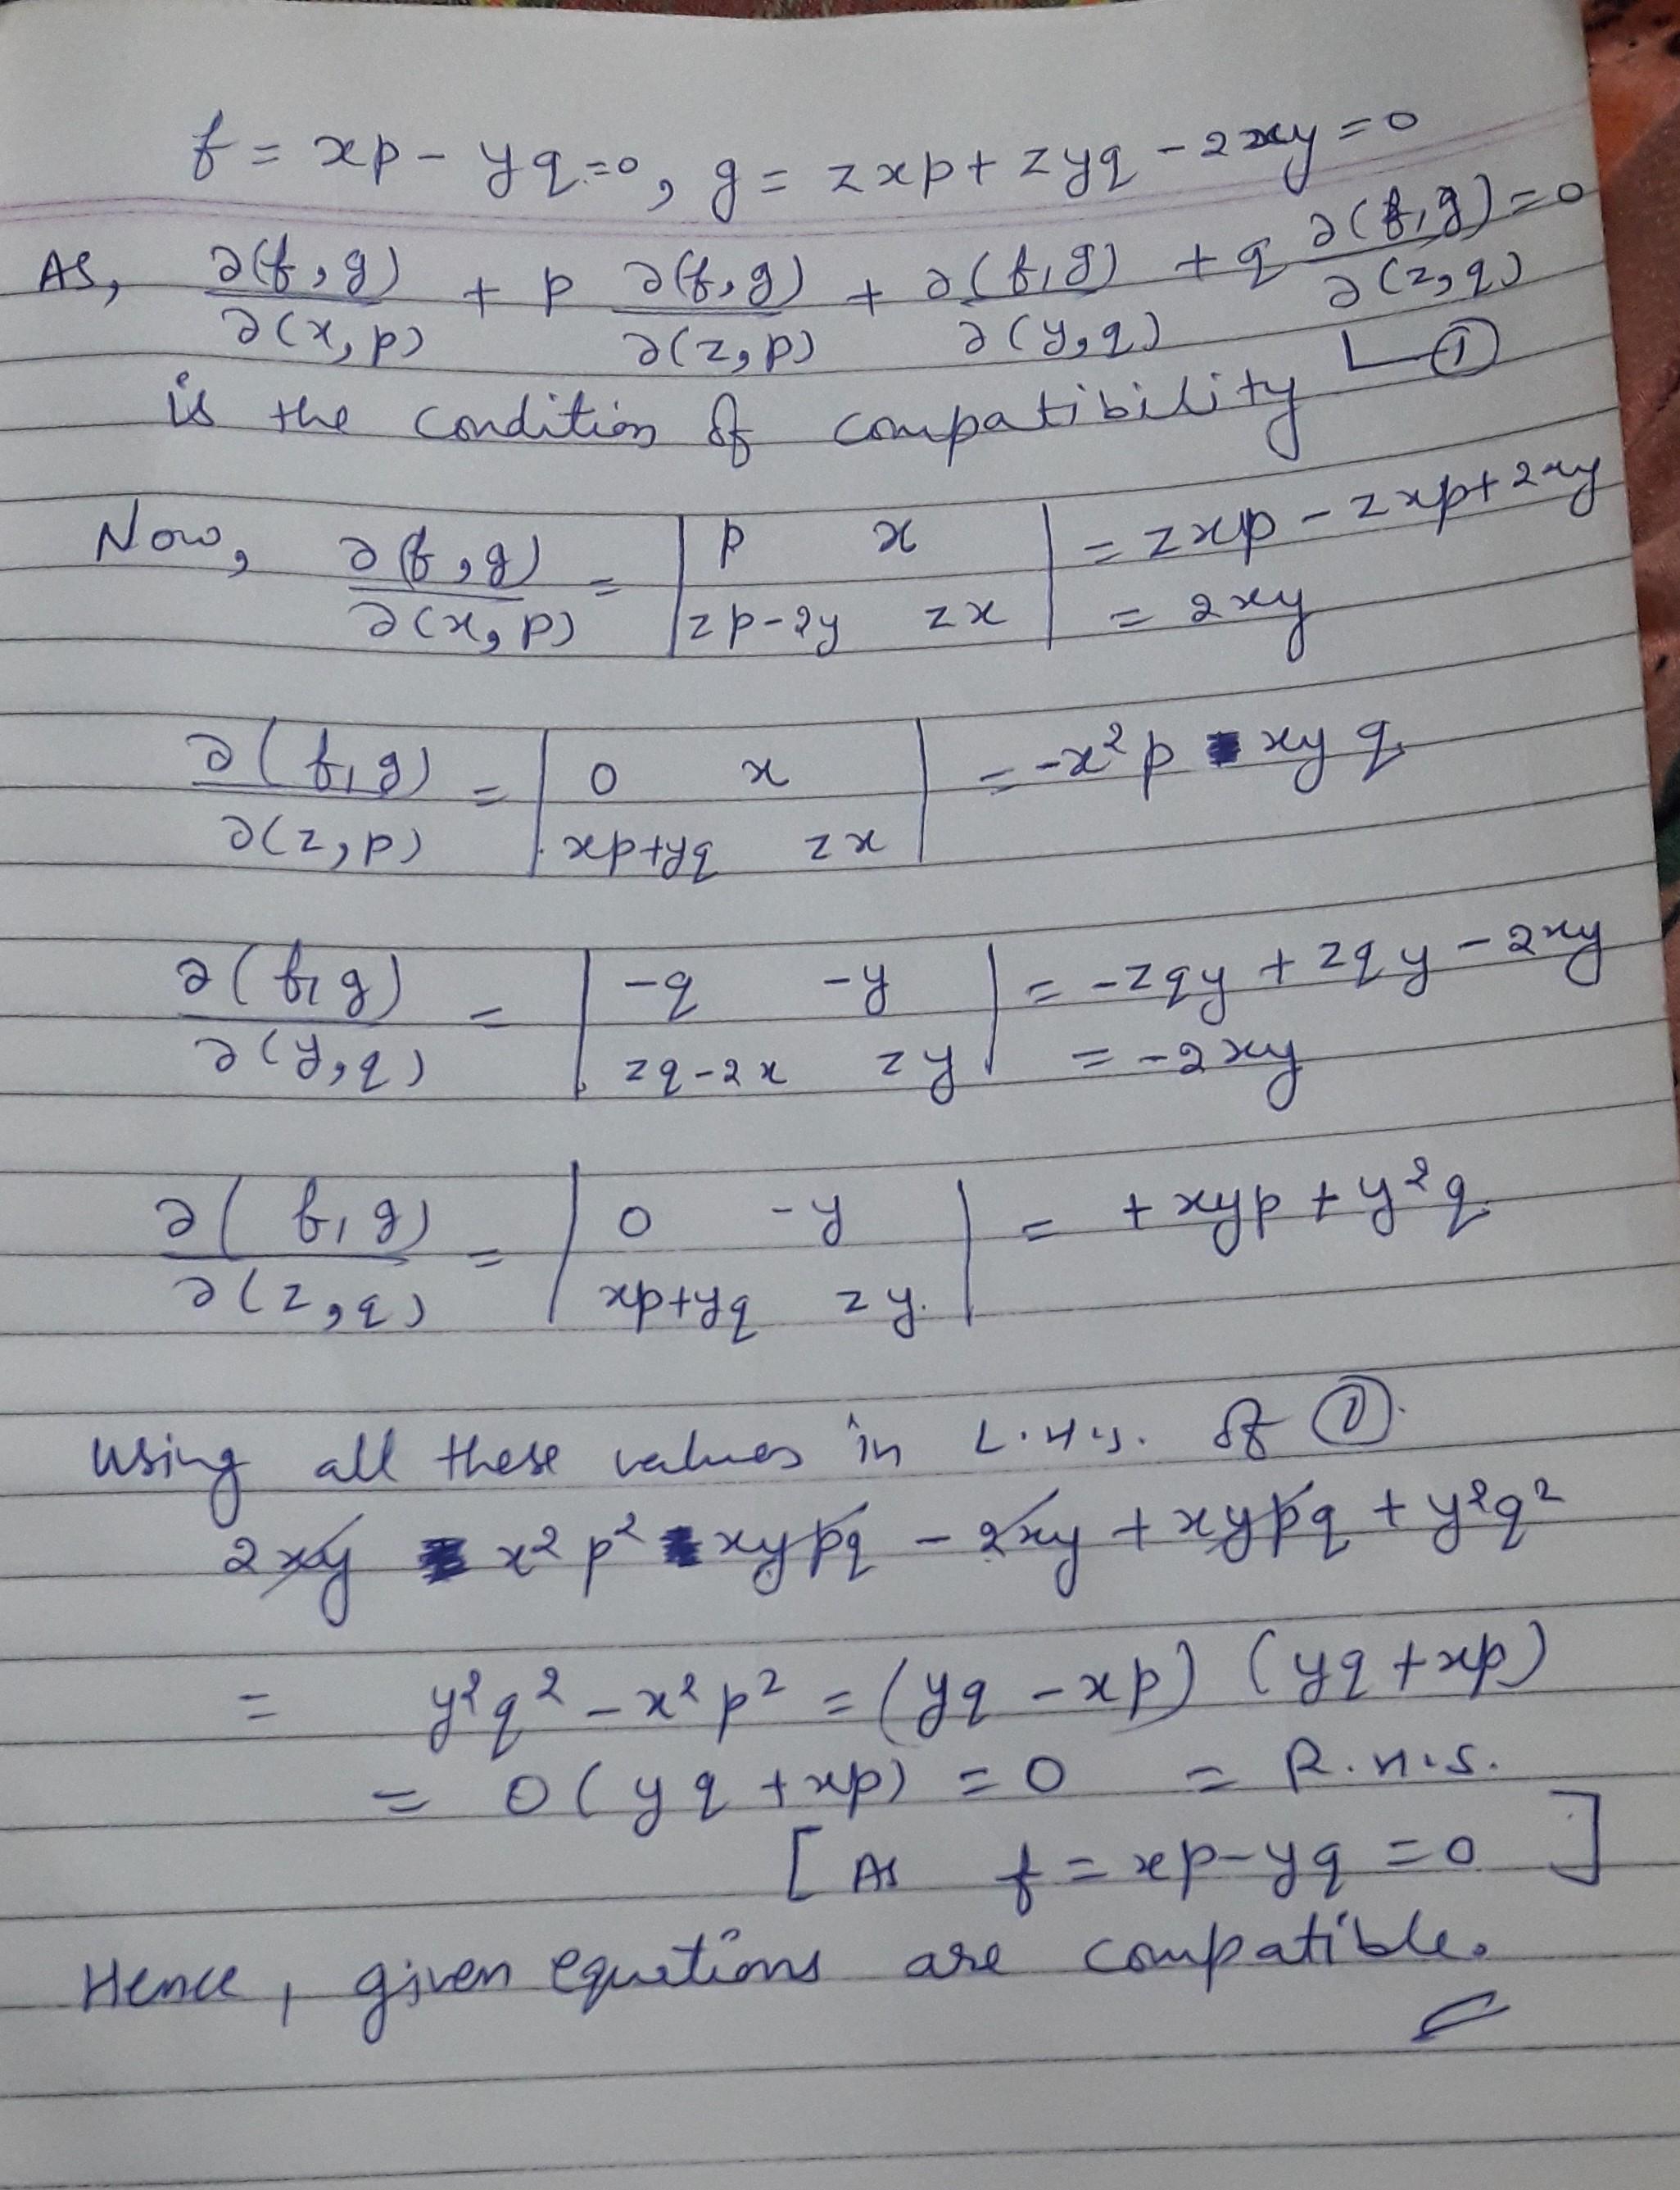 f = xp - yq = 0, g = zxp + zyq - 2xy = 0
As, ∂(f,g)/∂(x,p) + p ∂(f,g)/∂(z,p) + ∂(f,g)/∂(y,q) + q ∂(f,g)/∂(z,q) = 0
①
is the condition of compatibility
Now, ∂(f,g)/∂(x,p) = | p x ; zp-2y zx | = zxp - zxp + 2xy
= 2xy
∂(f,g)/∂(z,p) = | 0 x ; xp+yq zx | = -x²p - xyq
∂(f,g)/∂(y,q) = | -q -y ; zq-2x zy | = -zqy + zqy - 2xy
= -2xy
∂(f,g)/∂(z,q) = | 0 -y ; xp+yq zy. | = + xyp + y²q.
Using all these values in L.H.S. of ①.
2xy - x²p² - xypq - 2xy + xypq + y²q²
= y²q² - x²p² = (yq - xp) (yq + xp)
= 0 (yq + xp) = 0 = R.H.S.
[As f = xp - yq = 0]
Hence, given equations are compatible.